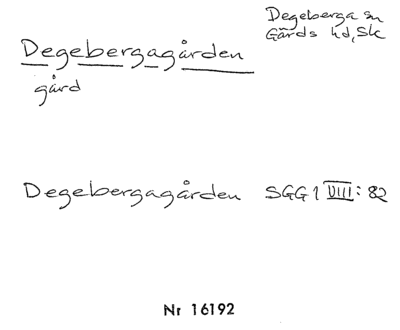 Degeberga sn
Gärds hd, Sk
Degebergagården
gård
Degebergagården SGG 1 VIII: 82
Nr 16192